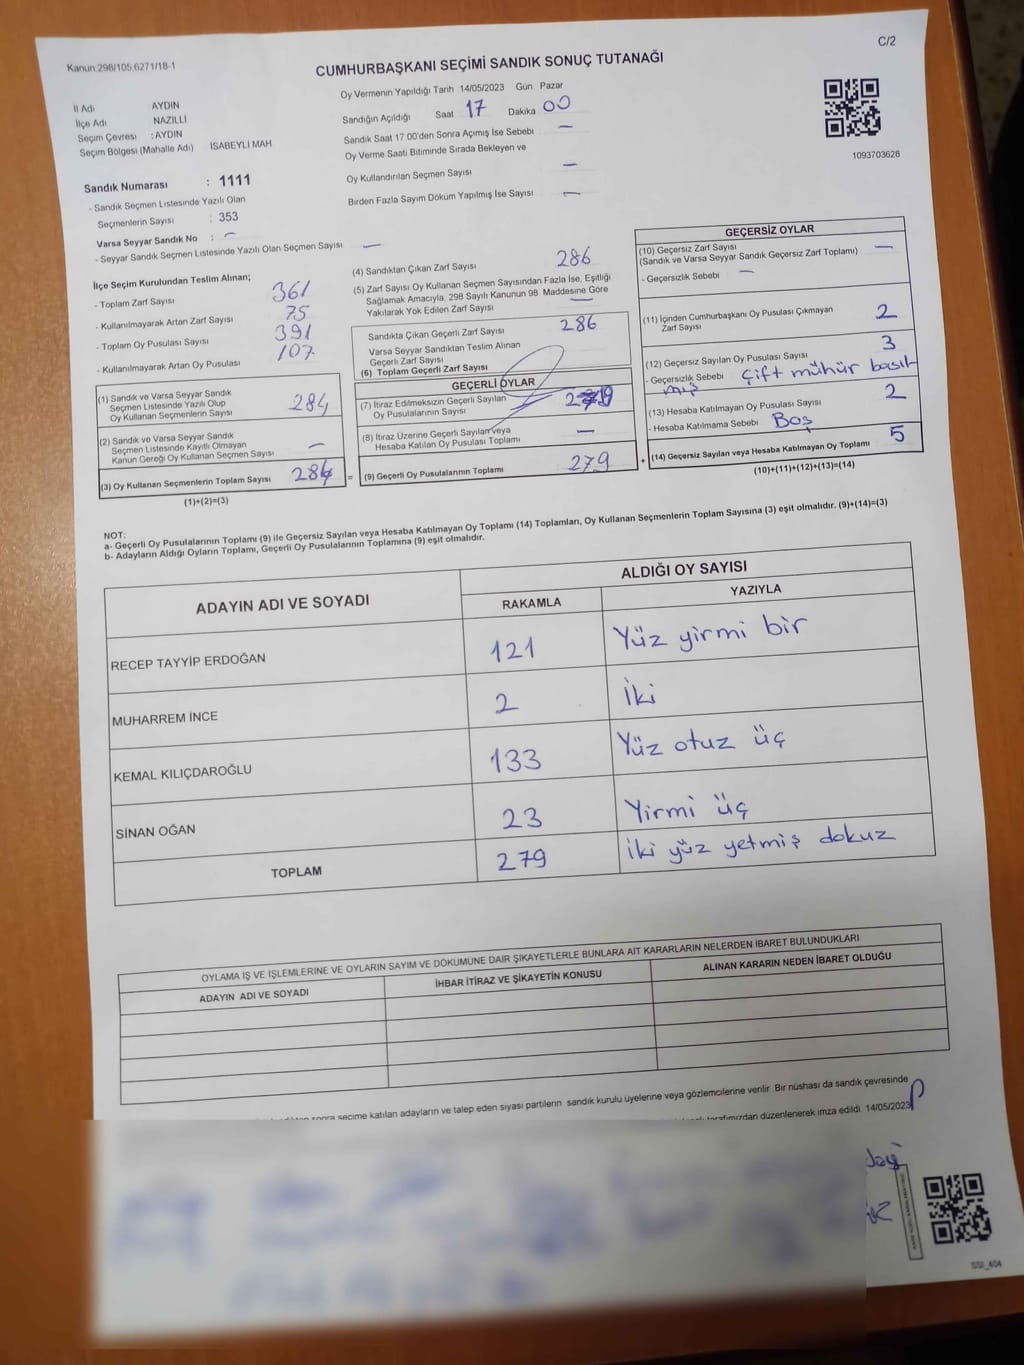 Kanun:298/105,6271/18-1
C/2
CUMHURBAŞKANI SEÇİMİ SANDIK SONUÇ TUTANAĞI
İl Adı AYDIN
İlçe Adı NAZİLLİ
Seçim Çevresi : AYDIN
Seçim Bölgesi (Mahalle Adı) İSABEYLİ MAH
Sandık Numarası : 1111
- Sandık Seçmen Listesinde Yazılı Olan
Seçmenlerin Sayısı : 353
Varsa Seyyar Sandık No : –
- Seyyar Sandık Seçmen Listesinde Yazılı Olan Seçmen Sayısı –
Oy Vermenin Yapıldığı Tarih 14/05/2023 Gün Pazar
Sandığın Açıldığı Saat 17 Dakika 00
Sandık Saat 17 00'den Sonra Açımış İse Sebebi –
Oy Verme Saati Bitiminde Sırada Bekleyen ve
Oy Kullandırılan Seçmen Sayısı –
Birden Fazla Sayım Döküm Yapılmış İse Sayısı –
1093703628
İlçe Seçim Kurulundan Teslim Alınan;
- Toplam Zarf Sayısı 361
- Kullanılmayarak Artan Zarf Sayısı 75
- Toplam Oy Pusulası Sayısı 391
- Kullanılmayarak Artan Oy Pusulası 107
(1) Sandık ve Varsa Seyyar Sandık
Seçmen Listesinde Yazılı Olup
Oy Kullanan Seçmenlerin Sayısı 284
(2) Sandık ve Varsa Seyyar Sandık
Seçmen Listesinde Kayıtlı Olmayan
Kanun Gereği Oy Kullanan Seçmen Sayısı –
(3) Oy Kullanan Seçmenlerin Toplam Sayısı 284 =
(1)+(2)=(3)
(4) Sandıktan Çıkan Zarf Sayısı 286
(5) Zarf Sayısı Oy Kullanan Seçmen Sayısından Fazla İse, Eşitliği
Sağlamak Amacıyla, 298 Sayılı Kanunun 98. Maddesine Göre
Yakılarak Yok Edilen Zarf Sayısı –
Sandıkta Çıkan Geçerli Zarf Sayısı 286
Varsa Seyyar Sandıktan Teslim Alınan
Geçerli Zarf Sayısı
(6) Toplam Geçerli Zarf Sayısı
GEÇERLİ OYLAR
(7) İtiraz Edilmeksizin Geçerli Sayılan
Oy Pusulalarının Sayısı 279
(8) İtiraz Üzerine Geçerli Sayılan veya
Hesaba Katılan Oy Pusulası Toplamı –
(9) Geçerli Oy Pusulalarının Toplamı 279 +
GEÇERSİZ OYLAR
(10) Geçersiz Zarf Sayısı
(Sandık ve Varsa Seyyar Sandık Geçersiz Zarf Toplamı) –
- Geçersizlik Sebebi –
(11) İçinden Cumhurbaşkanı Oy Pusulası Çıkmayan
Zarf Sayısı 2
(12) Geçersiz Sayılan Oy Pusulası Sayısı 3
- Geçersizlik Sebebi Çift mühür basıl-
mış
(13) Hesaba Katılmayan Oy Pusulası Sayısı 2
- Hesaba Katılmama Sebebi Boş
(14) Geçersiz Sayılan veya Hesaba Katılmayan Oy Toplamı 5
(10)+(11)+(12)+(13)=(14)
NOT:
a- Geçerli Oy Pusulalarının Toplamı (9) ile Geçersiz Sayılan veya Hesaba Katılmayan Oy Toplamı (14) Toplamları, Oy Kullanan Seçmenlerin Toplam Sayısına (3) eşit olmalıdır. (9)+(14)=(3)
b- Adayların Aldığı Oyların Toplamı, Geçerli Oy Pusulalarının Toplamına (9) eşit olmalıdır.
ADAYIN ADI VE SOYADI
ALDIĞI OY SAYISI
RAKAMLA YAZIYLA
RECEP TAYYİP ERDOĞAN 121 Yüz yirmi bir
MUHARREM İNCE 2 İki
KEMAL KILIÇDAROĞLU 133 Yüz otuz üç
SİNAN OĞAN 23 Yirmi üç
TOPLAM 279 İki yüz yetmiş dokuz
OYLAMA İŞ VE İŞLEMLERİNE VE OYLARIN SAYIM VE DÖKÜMÜNE DAİR ŞİKAYETLERLE BUNLARA AİT KARARLARIN NELERDEN İBARET BULUNDUKLARI
ADAYIN ADI VE SOYADI
İHBAR İTİRAZ VE ŞİKAYETİN KONUSU
ALINAN KARARIN NEDEN İBARET OLDUĞU
sonra seçime katılan adayların ve talep eden siyasi partilerin sandık kurulu üyelerine veya gözlemcilerine verilir. Bir nüshası da sandık çevresinde
tarafımızdan düzenlenerek imza edildi. 14/05/2023